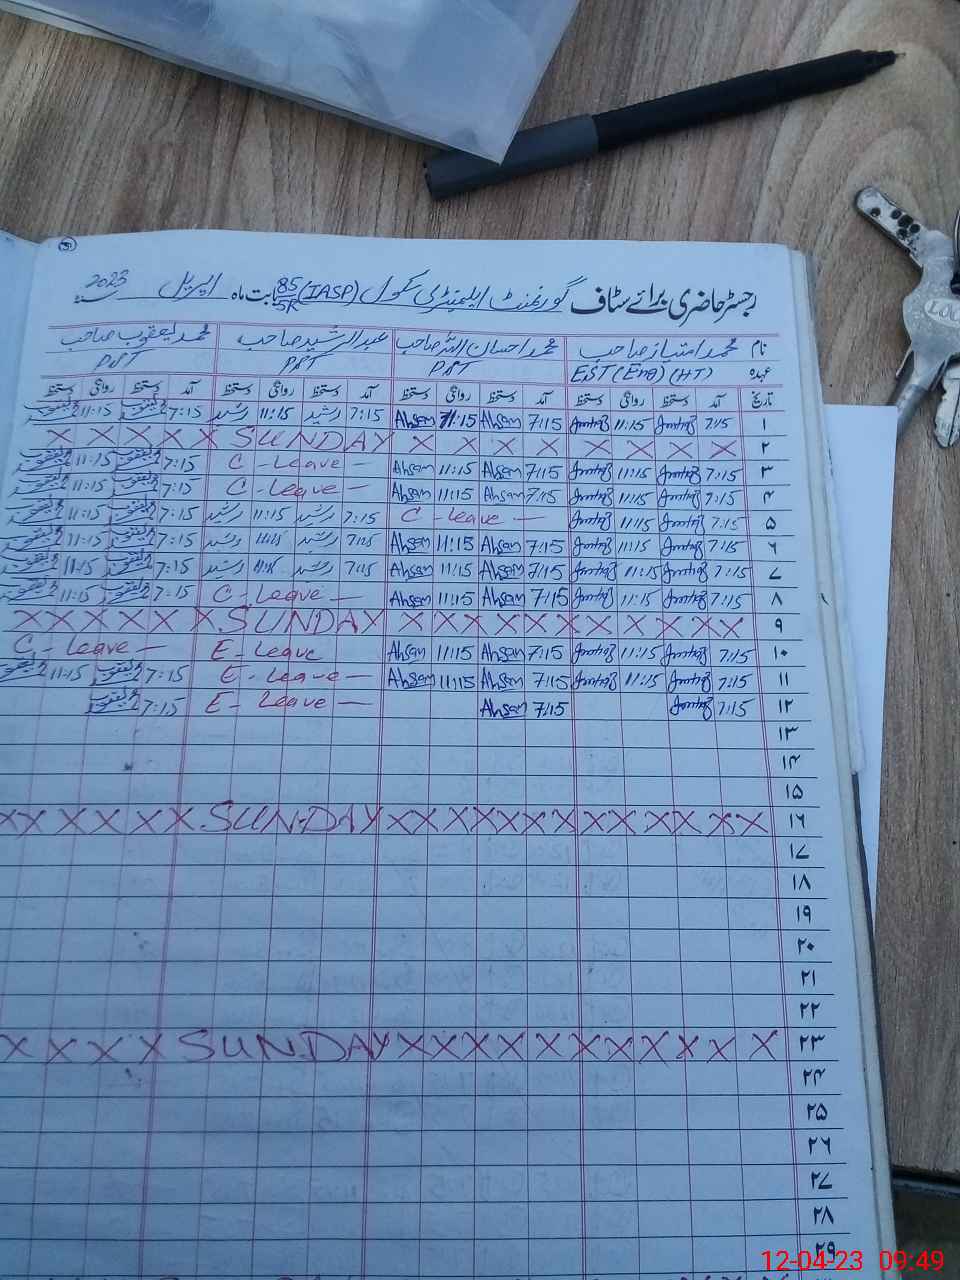 رجسٹر حاضری برائے سٹاف گورنمنٹ ایلیمنٹری سکول (IASP) 85/5R بابت ماہ اپریل سنہ 2023
نام محمد امتیاز صاحب محمد احسان اللہ صاحب عبدالرشید صاحب محمد یعقوب صاحب
عہدہ EST (Eng) (HT) PST PST PST
تاریخ آمد دستخط روانگی دستخط آمد دستخط روانگی دستخط آمد دستخط روانگی دستخط آمد دستخط روانگی دستخط
۱ 7:15 11:15 7:15 Ahsan 11:15 Ahsan 7:15 رشید 11:15 رشید 7:15 یعقوب 11:15 یعقوب
۲ X X X X X X X X SUNDAY X X X X X
۳ 7:15 11:15 7:15 Ahsan 11:15 Ahsan C - Leave — 7:15 یعقوب 11:15 یعقوب
۴ 7:15 11:15 7:15 Ahsan 11:15 Ahsan C - Leave — 7:15 یعقوب 11:15 یعقوب
۵ 7:15 11:15 C - Leave — 7:15 رشید 11:15 رشید 7:15 یعقوب 11:15 یعقوب
۶ 7:15 11:15 7:15 Ahsan 11:15 Ahsan 7:15 رشید 11:15 رشید 7:15 یعقوب 11:15 یعقوب
۷ 7:15 11:15 7:15 Ahsan 11:15 Ahsan 7:15 رشید 11:15 رشید 7:15 یعقوب 11:15 یعقوب
۸ 7:15 11:15 7:15 Ahsan 11:15 Ahsan C - Leave — 7:15 یعقوب 11:15 یعقوب
۹ X X X X X X X X X SUNDAY X X X X X X
۱۰ 7:15 11:15 7:15 Ahsan 11:15 Ahsan E - Leave C - Leave —
۱۱ 7:15 11:15 7:15 Ahsan 11:15 Ahsan E - Leave — 7:15 یعقوب 11:15 یعقوب
۱۲ 7:15 7:15 Ahsan E - Leave — 7:15 یعقوب
۱۳
۱۴
۱۵
۱۶ X X X X X X X X X X X X SUNDAY X X X X X X
۱۷
۱۸
۱۹
۲۰
۲۱
۲۲
۲۳ X X X X X X X X X X X SUNDAY X X X X
۲۴
۲۵
۲۶
۲۷
۲۸
۲۹
12-04-23 09:49